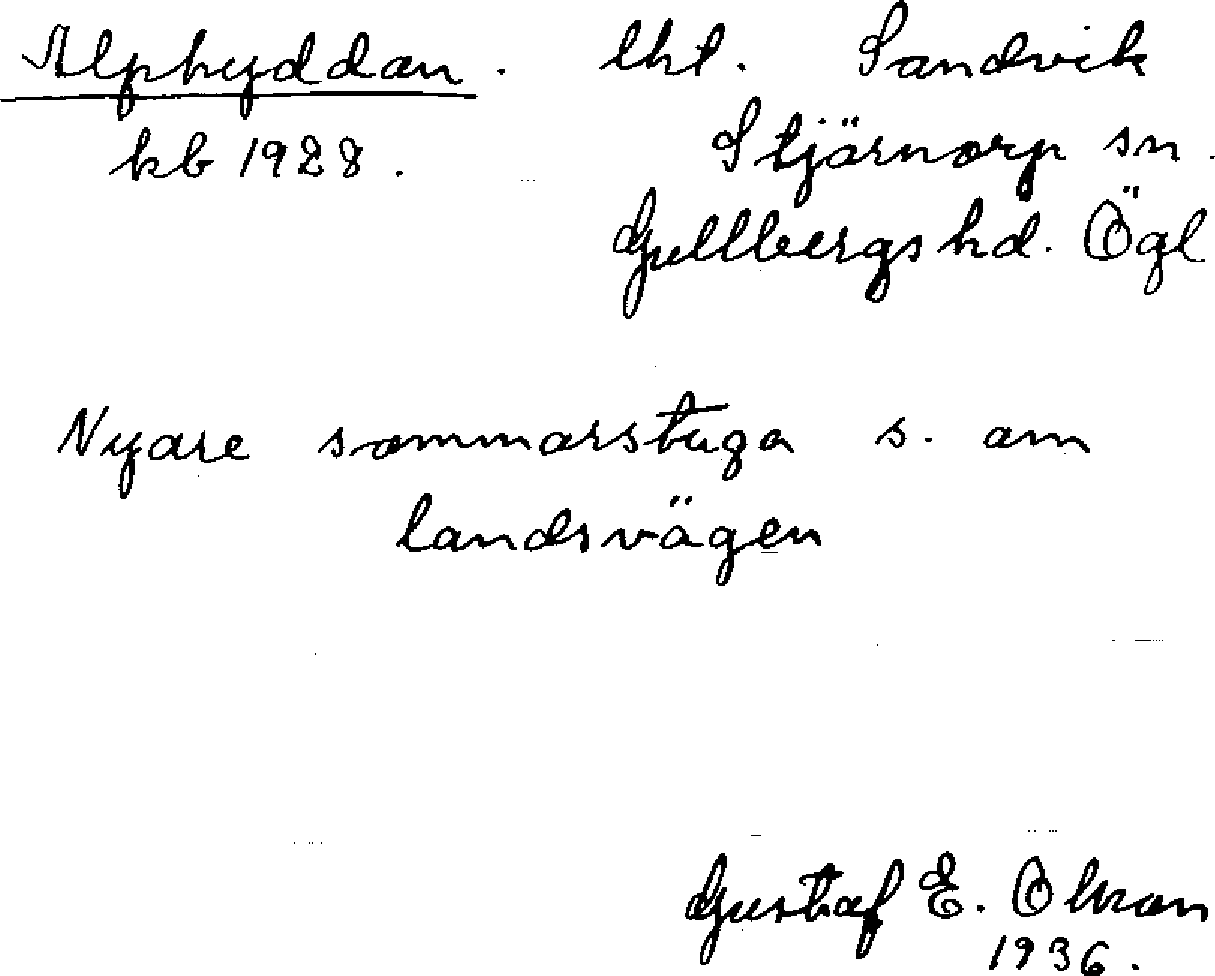 Alphyddan. lht. Sandvik
kb 1928. Stjärnorp sn.
Gullbergs hd. Ögl
Nyare sommarstuga s. om
landsvägen
Gustaf E. Olsson
1936.